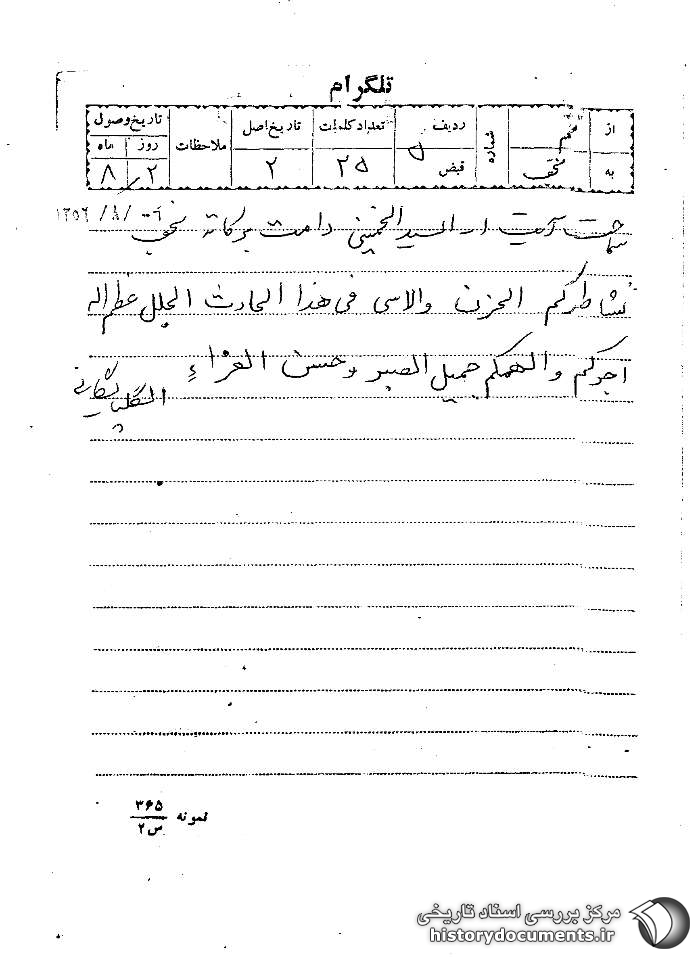 تلگرام
از قم
به نجف
شماره
ردیف ۵
قبض
تعداد کلمات ۲۵
تاریخ اصل ۲
ملاحظات
تاریخ وصول
روز ماه
۲ ۸
۱۳۵۶/۸/۰۲
سماحت آیت ا... السید الخمینی دامت برکاته نجف
نشاطرکم الحزن والاسی فی هذا الحادث الجلل عظم اله
اجرکم والهمکم جمیل الصبر وحسن العزاء
الگلپایگانی
نمونه ۳۶۵
س۲
مرکز بررسی اسناد تاریخی
historydocuments.ir